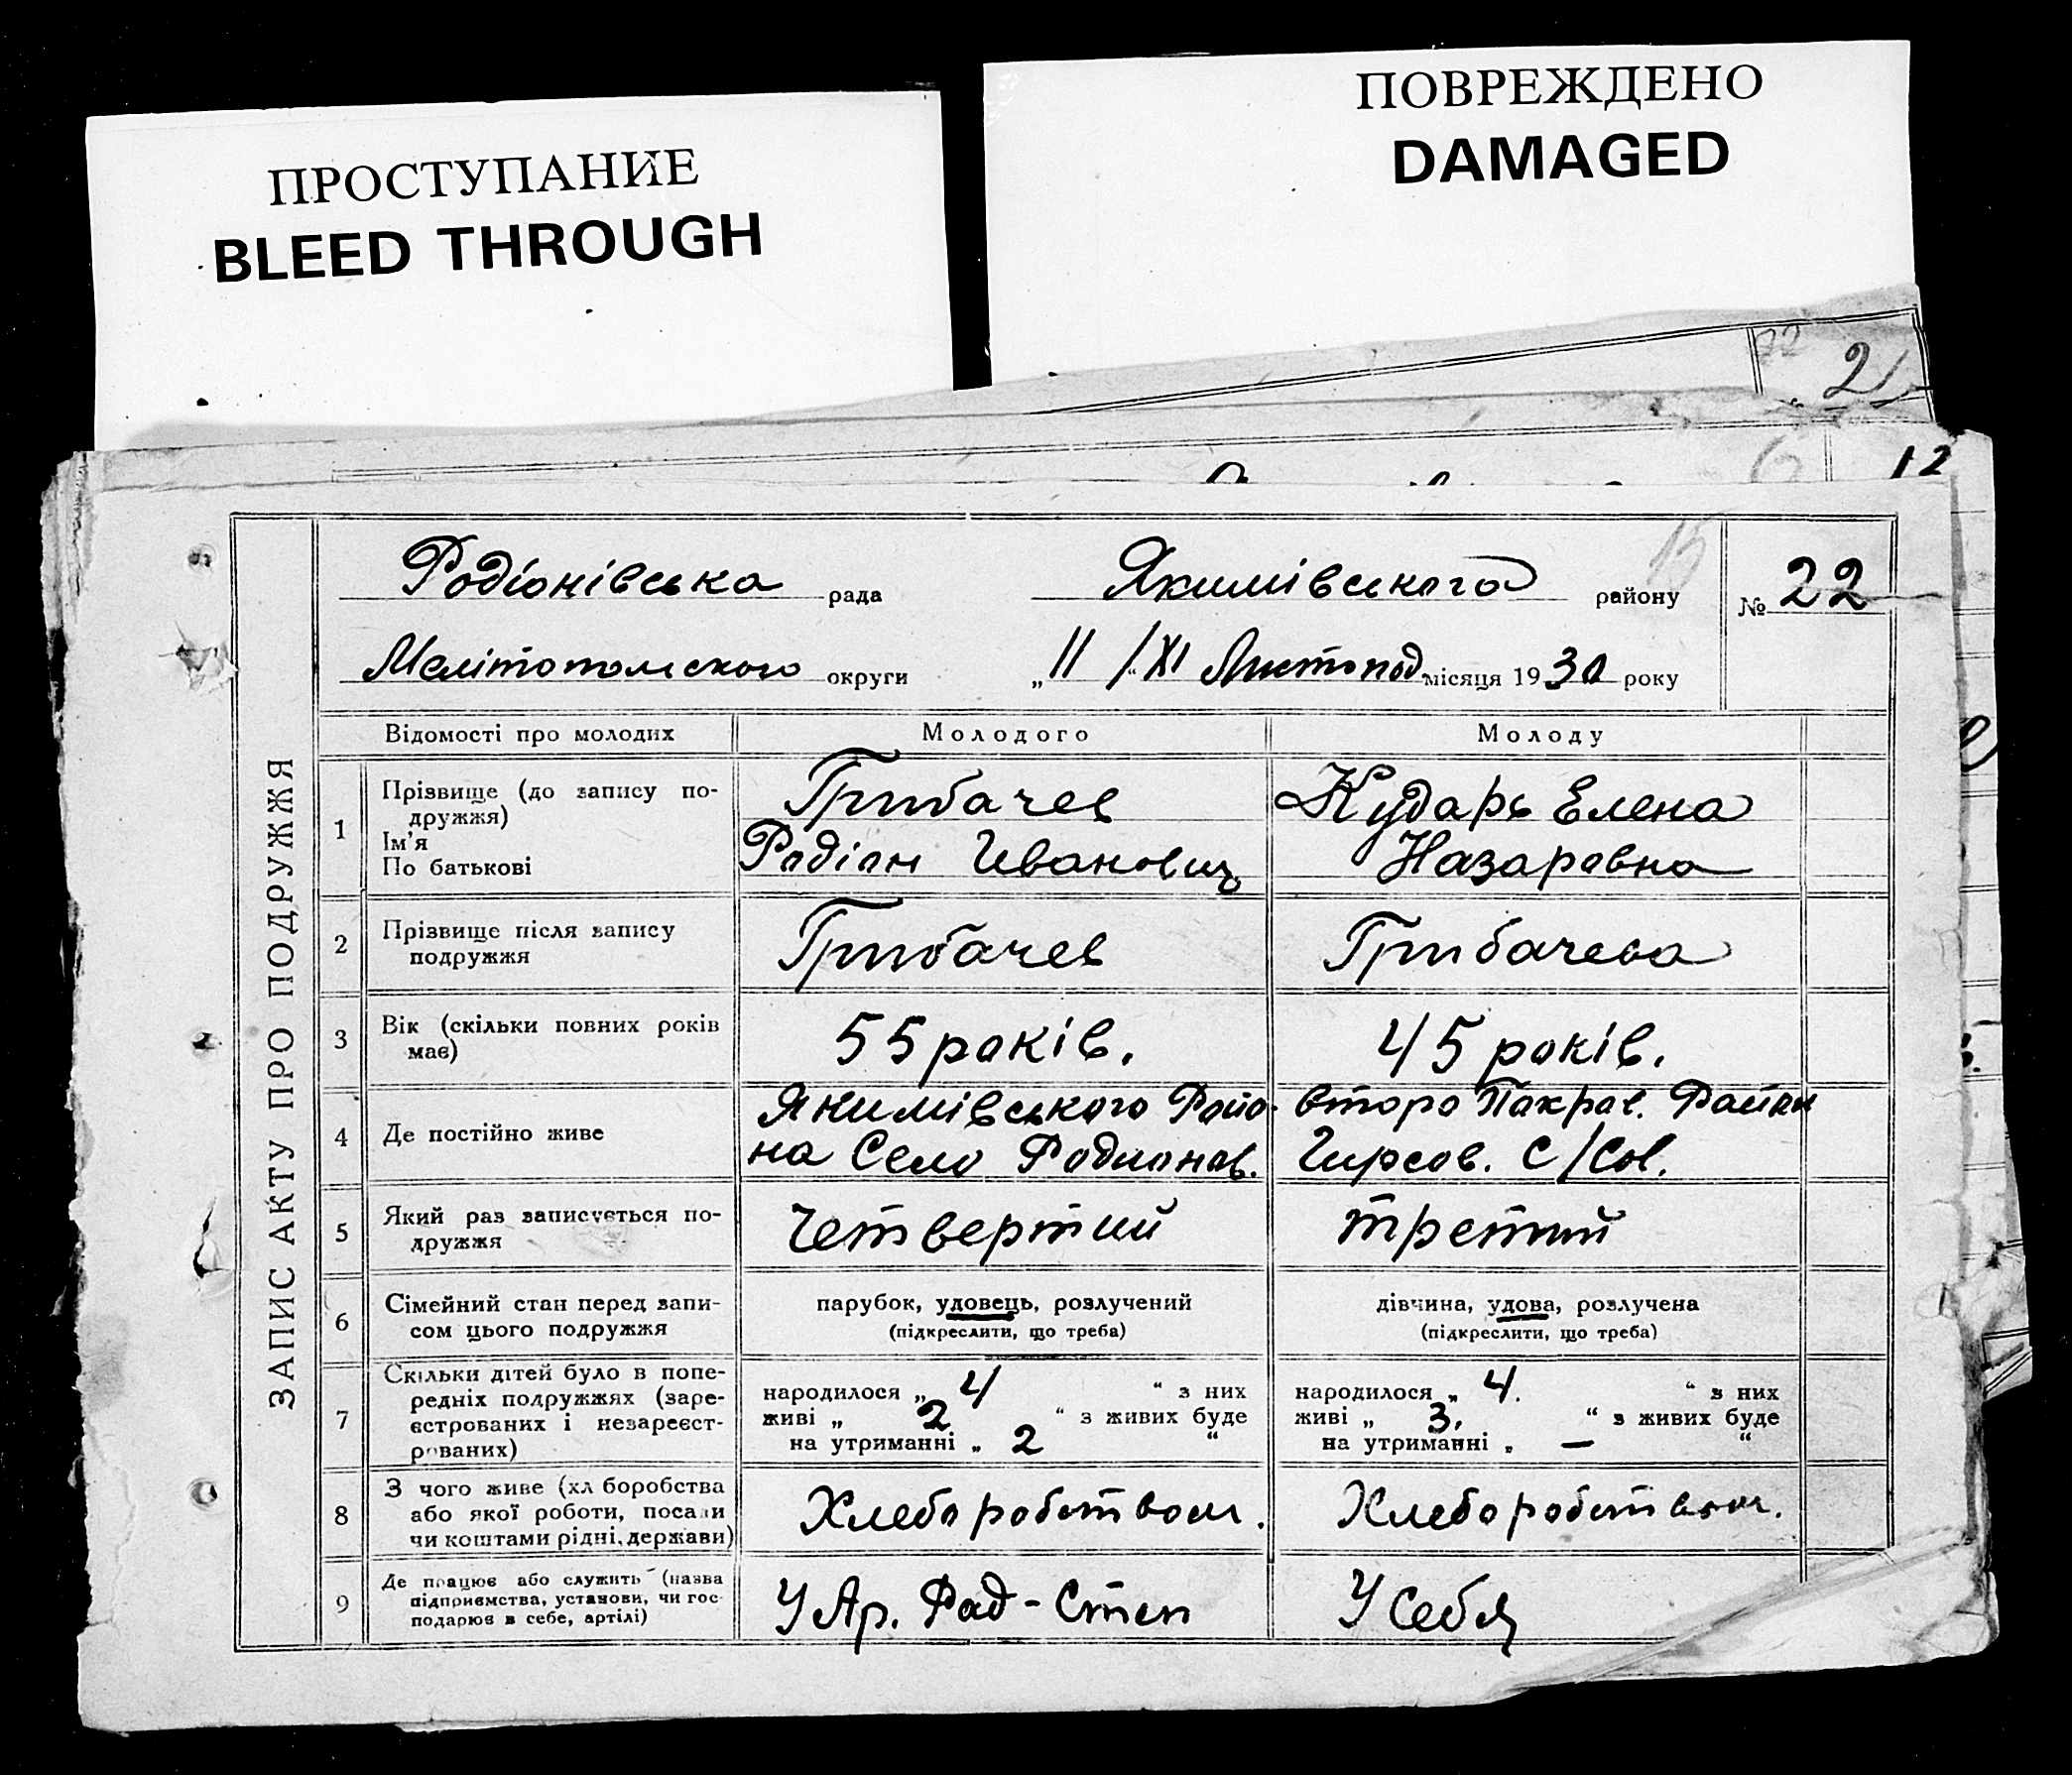 ПРОСТУПАНИЕ
BLEED THROUGH
ПОВРЕЖДЕНО
DAMAGED
22 21
12
15
Родіонівська рада Якимівського району № 22
Мелітопольского округи „11 /XI Листопод місяця 1930 року
ЗАПИС АКТУ ПРО ПОДРУЖЖЯ
Відомості про молодих Молодого Молоду
1 Прізвище (до запису подружжя) Ім'я По батькові
Грибачев
Родіон Иванович
Кударь Елена
Назаровна
2 Прізвище після запису
подружжя
Грибачев
Грибачева
3 Вік (скільки повних років
має)
55 років.
45 років.
4 Де постійно живе
Якимівського Райо-
на Село Родионов.
Второ Покров. Район
Гирсов. С/Сов.
5 Який раз записується по-
дружжя
Четвертий
третий
6 Сімейний стан перед запи-
сом цього подружжя
парубок, удовець, розлучений
(підкреслити, що треба)
дівчина, удова, розлучена
(підкреслити, що треба)
7 Скільки дітей було в попе-
редніх подружжях (заре-
єстрованих і незареєст-
рованих)
народилося „ 4 “ з них
живі „ 2 “ з живих буде
на утриманні „ 2 “
народилося „ 4. “ з них
живі „ 3. “ з живих буде
на утриманні „ — “
8 З чого живе (хлiборобства
або якої роботи, посади
чи коштами рідні, держави)
Хлеборобством.
Хлеборобством.
9 Де працює або служить (назва
підприємства, установи, чи гос-
подарює в себе, артілі)
У Ар. Рад-Степ
У Себя